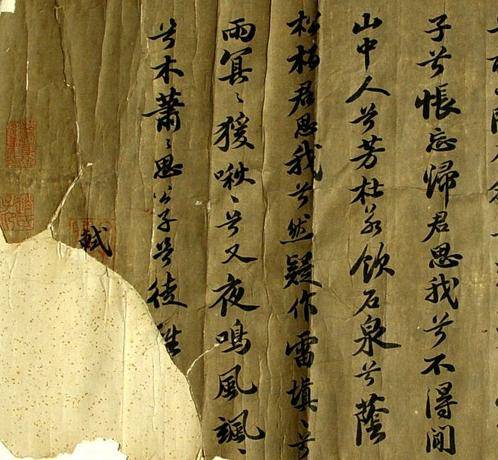 子兮悵忘歸君思我兮不得閒
山中人兮芳杜若飲石泉兮蔭
松柏君思我兮然疑作雷填〻兮
雨冥〻猨啾〻兮又夜鳴風颯〻
兮木蕭〻思公子兮徒
軾